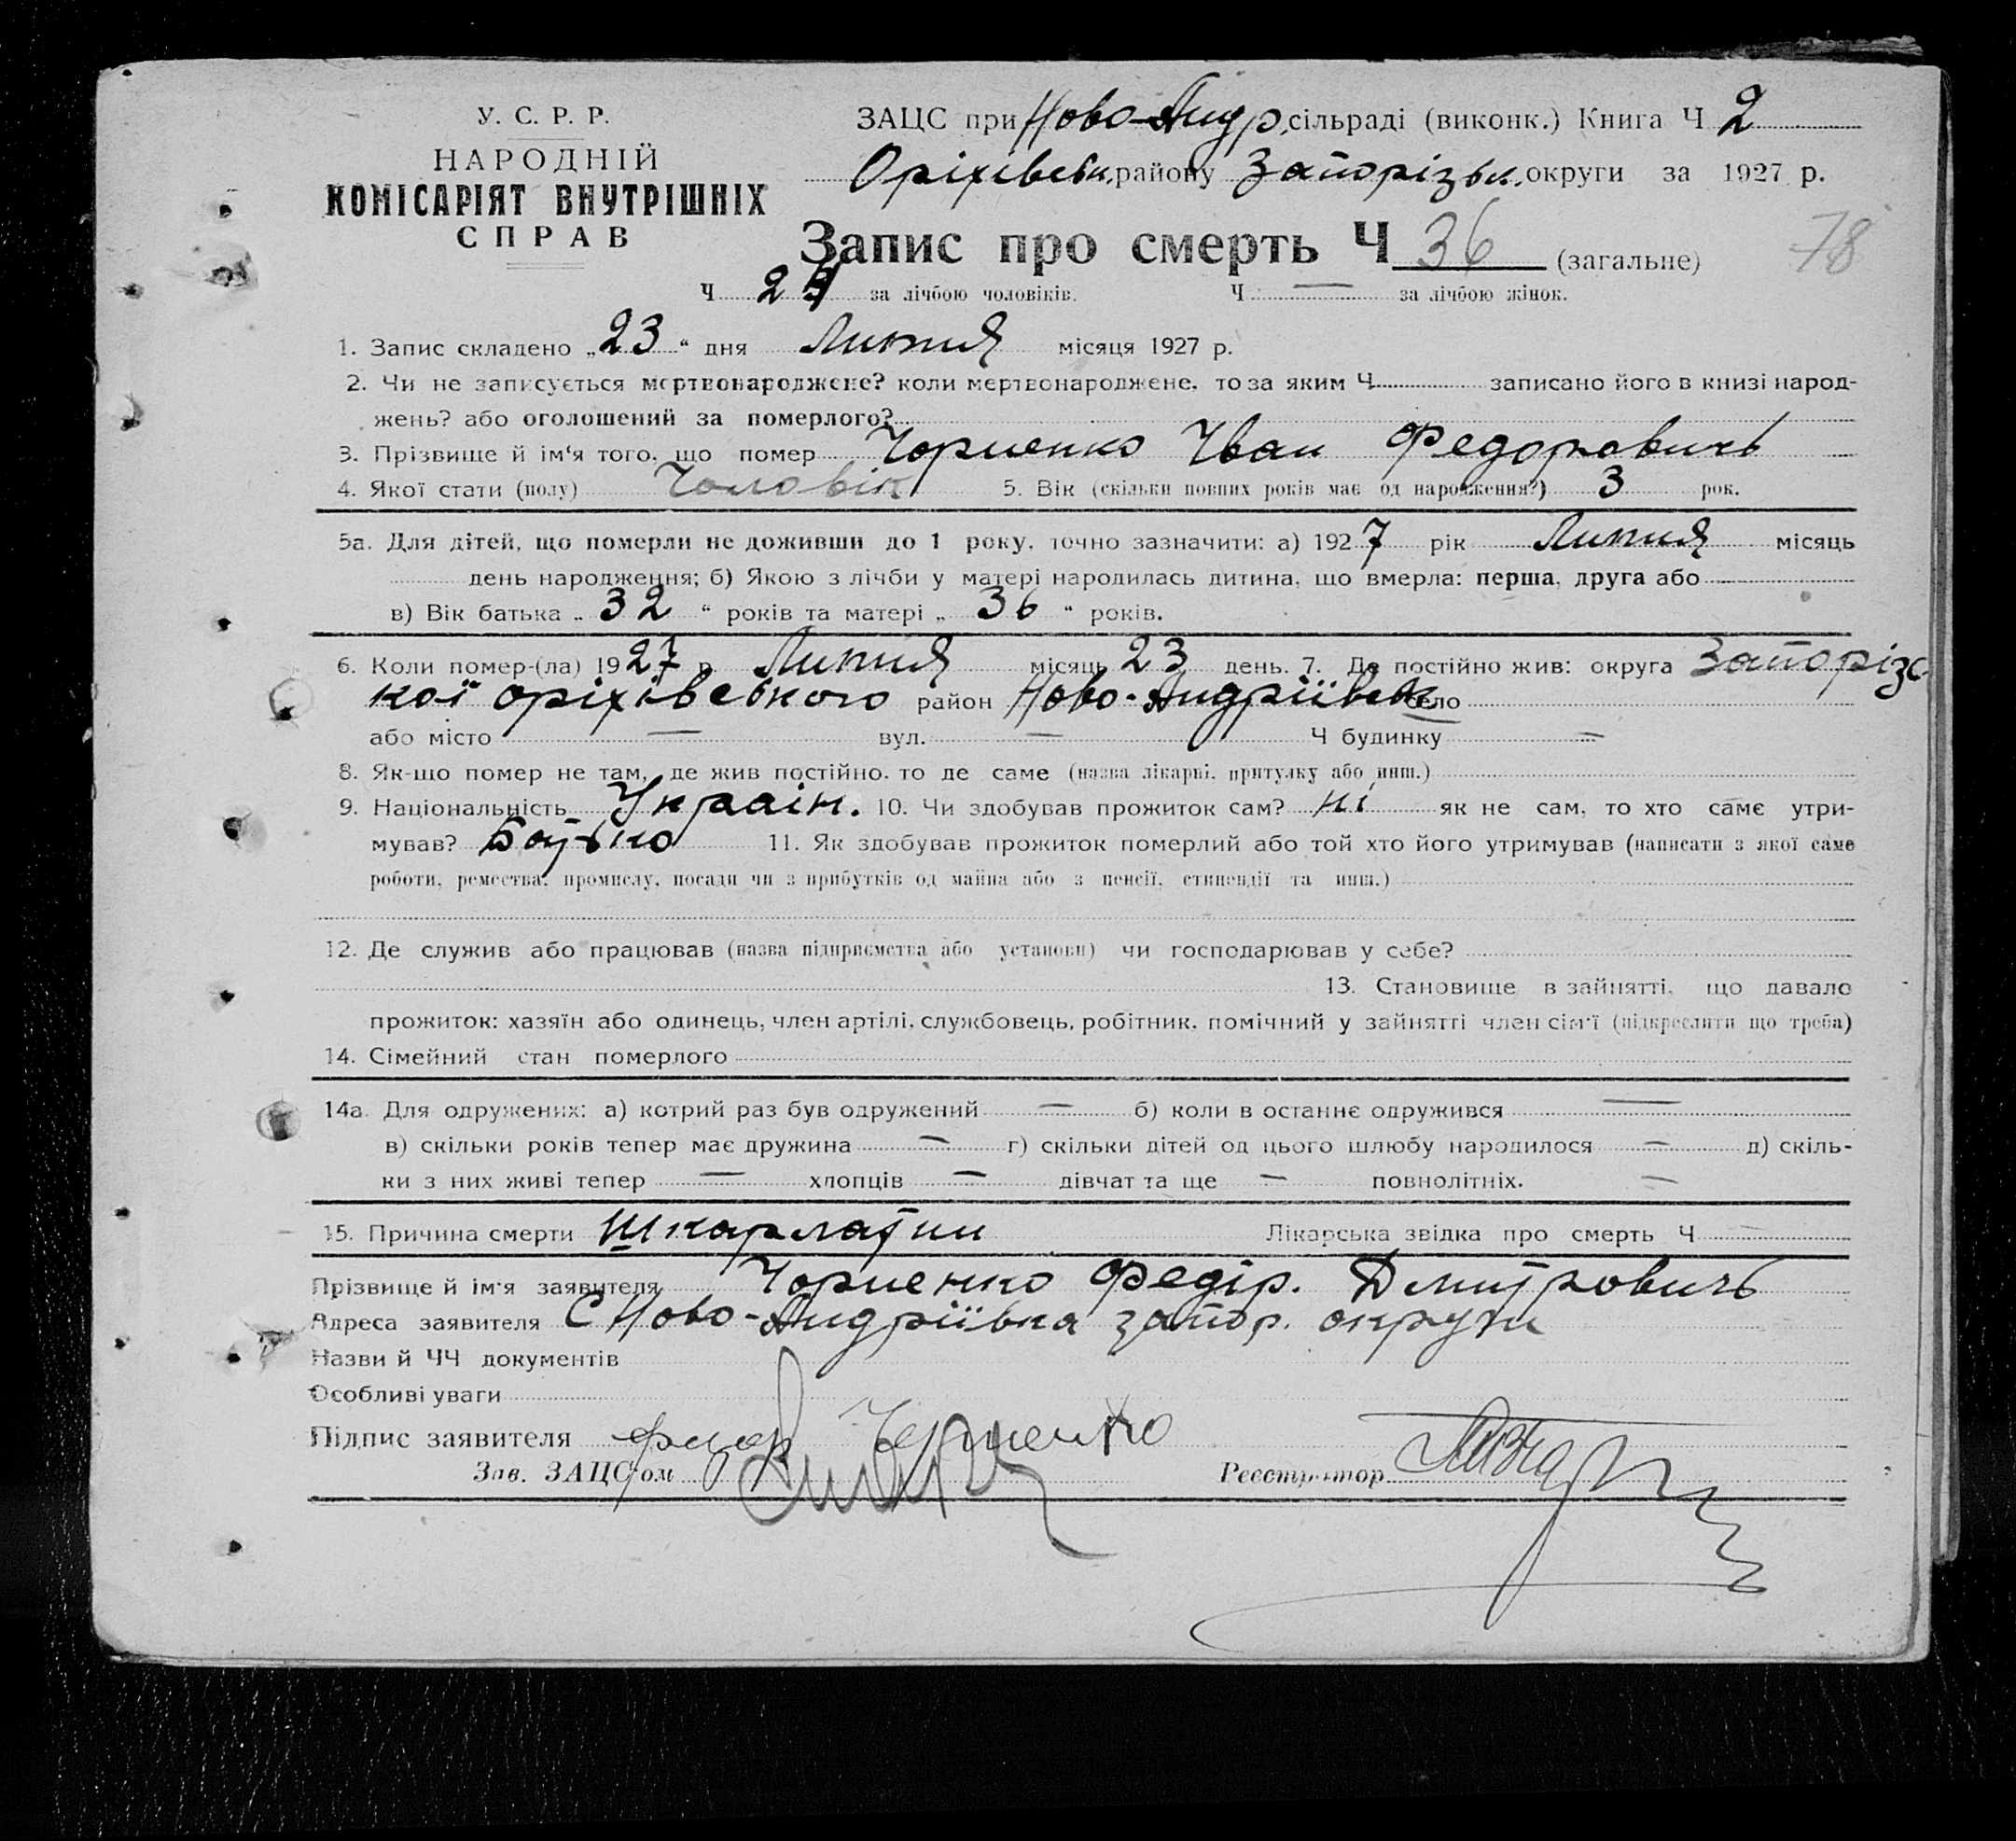 У. С. Р. Р.
НАРОДНІЙ
КОМІСАРІЯТ ВНУТРІШНІХ
СПРАВ
ЗАЦС при Ново-Андр. сільраді (виконк.) Книга Ч 2
Оріхівськ. району Запорізьк. округи за 1927 р.
Запис про смерть Ч 36 (загальне)
78
Ч 24 за лічбою чоловіків. Ч — за лічбою жінок.
1. Запис складено „23“ дня Липня місяця 1927 р.
2. Чи не записується мертвонароджене? коли мертвонароджене, то за яким Ч записано його в книзі народ-
жень? або оголошений за померлого?
3. Прізвище й ім'я того, що помер Чорненко Іван Федоровичь
4. Якої стати (полу) Чоловік 5. Вік (скільки повних років має од народження?) 3 рок.
5а. Для дітей, що померли не доживши до 1 року, точно зазначити: а) 1927 рік Липня місяць
день народження; б) Якою з лічби у матері народилась дитина, що вмерла: перша, друга або
в) Вік батька „32“ років та матері „36“ років.
6. Коли помер-(ла) 1927 р. Липня місяць 23 день. 7. Де постійно жив: округа Запорізс-
кої оріхівського район Ново-Андріївськ село
або місто — вул. — Ч будинку —
8. Як-що помер не там, де жив постійно, то де саме (назва лікарні, притулку або инш.)
9. Національність Украін. 10. Чи здобував прожиток сам? ні як не сам, то хто саме утри-
мував? Батько 11. Як здобував прожиток померлий або той хто його утримував (написати з якої саме
роботи, ремества, промислу, посади чи з прибутків од майна або з пенсії, стипендії та инш.)
12. Де служив або працював (назва підприємства або установи) чи господарював у себе?
13. Становище в зайнятті, що давало
прожиток: хазяїн або одинець, член артілі, службовець, робітник, помічний у зайнятті член сім'ї (підкреслити що треба)
14. Сімейний стан померлого
14а. Для одружених: а) котрий раз був одружений — б) коли в останнє одружився —
в) скільки років тепер має дружина — г) скільки дітей од цього шлюбу народилося — д) скіль-
ки з них живі тепер — хлопців — дівчат та ще — повнолітніх. —
15. Причина смерти Шкарлатин Лікарська звідка про смерть Ч —
Прізвище й ім'я заявителя Чорненко Федір. Дмитровичь
Адреса заявителя С Ново-Андріївка запор. округи
Назви й ЧЧ документів
Особливі уваги
Підпис заявителя Чорненко
Зав. ЗАЦС'ом Реєстратор